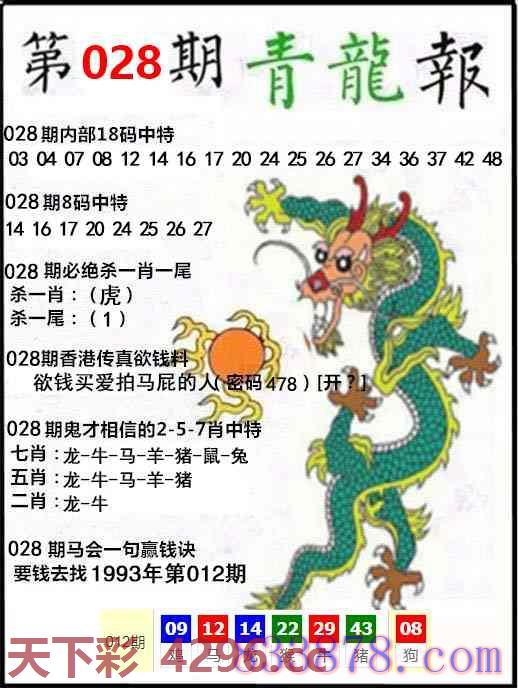 第028期 青龍報
028期内部18码中特
03 04 07 08 12 14 16 17 20 24 25 26 27 34 36 37 42 48
028期8码中特
14 16 17 20 24 25 26 27
028 期必绝杀一肖一尾
杀一肖：（虎）
杀一尾：（1）
028期香港传真欲钱料
欲钱买爱拍马屁的人（密码478）[开？]
028期鬼才相信的2-5-7肖中特
七肖：龙-牛-马-羊-猪-鼠-兔
五肖：龙-牛-马-羊-猪
二肖：龙-牛
028 期马会一句赢钱诀
要钱去找1993年第012期
012期 09 12 14 22 29 43 08
鸡 马 龙 猴 牛 猪 狗
天下彩